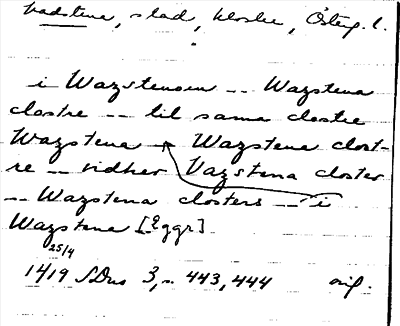 Vadstena, stad, kloster, Österg. l.
i Wazstenom -- Wazstena
clostre -- til sama clostre
Wazstena -- Wazstena clost-
re -- vidher Vazstena closter
-- Wazstena closters -- i
Wazstena [Eggr]
25/4
1419 SDns 3, s. 443, 444 orig.